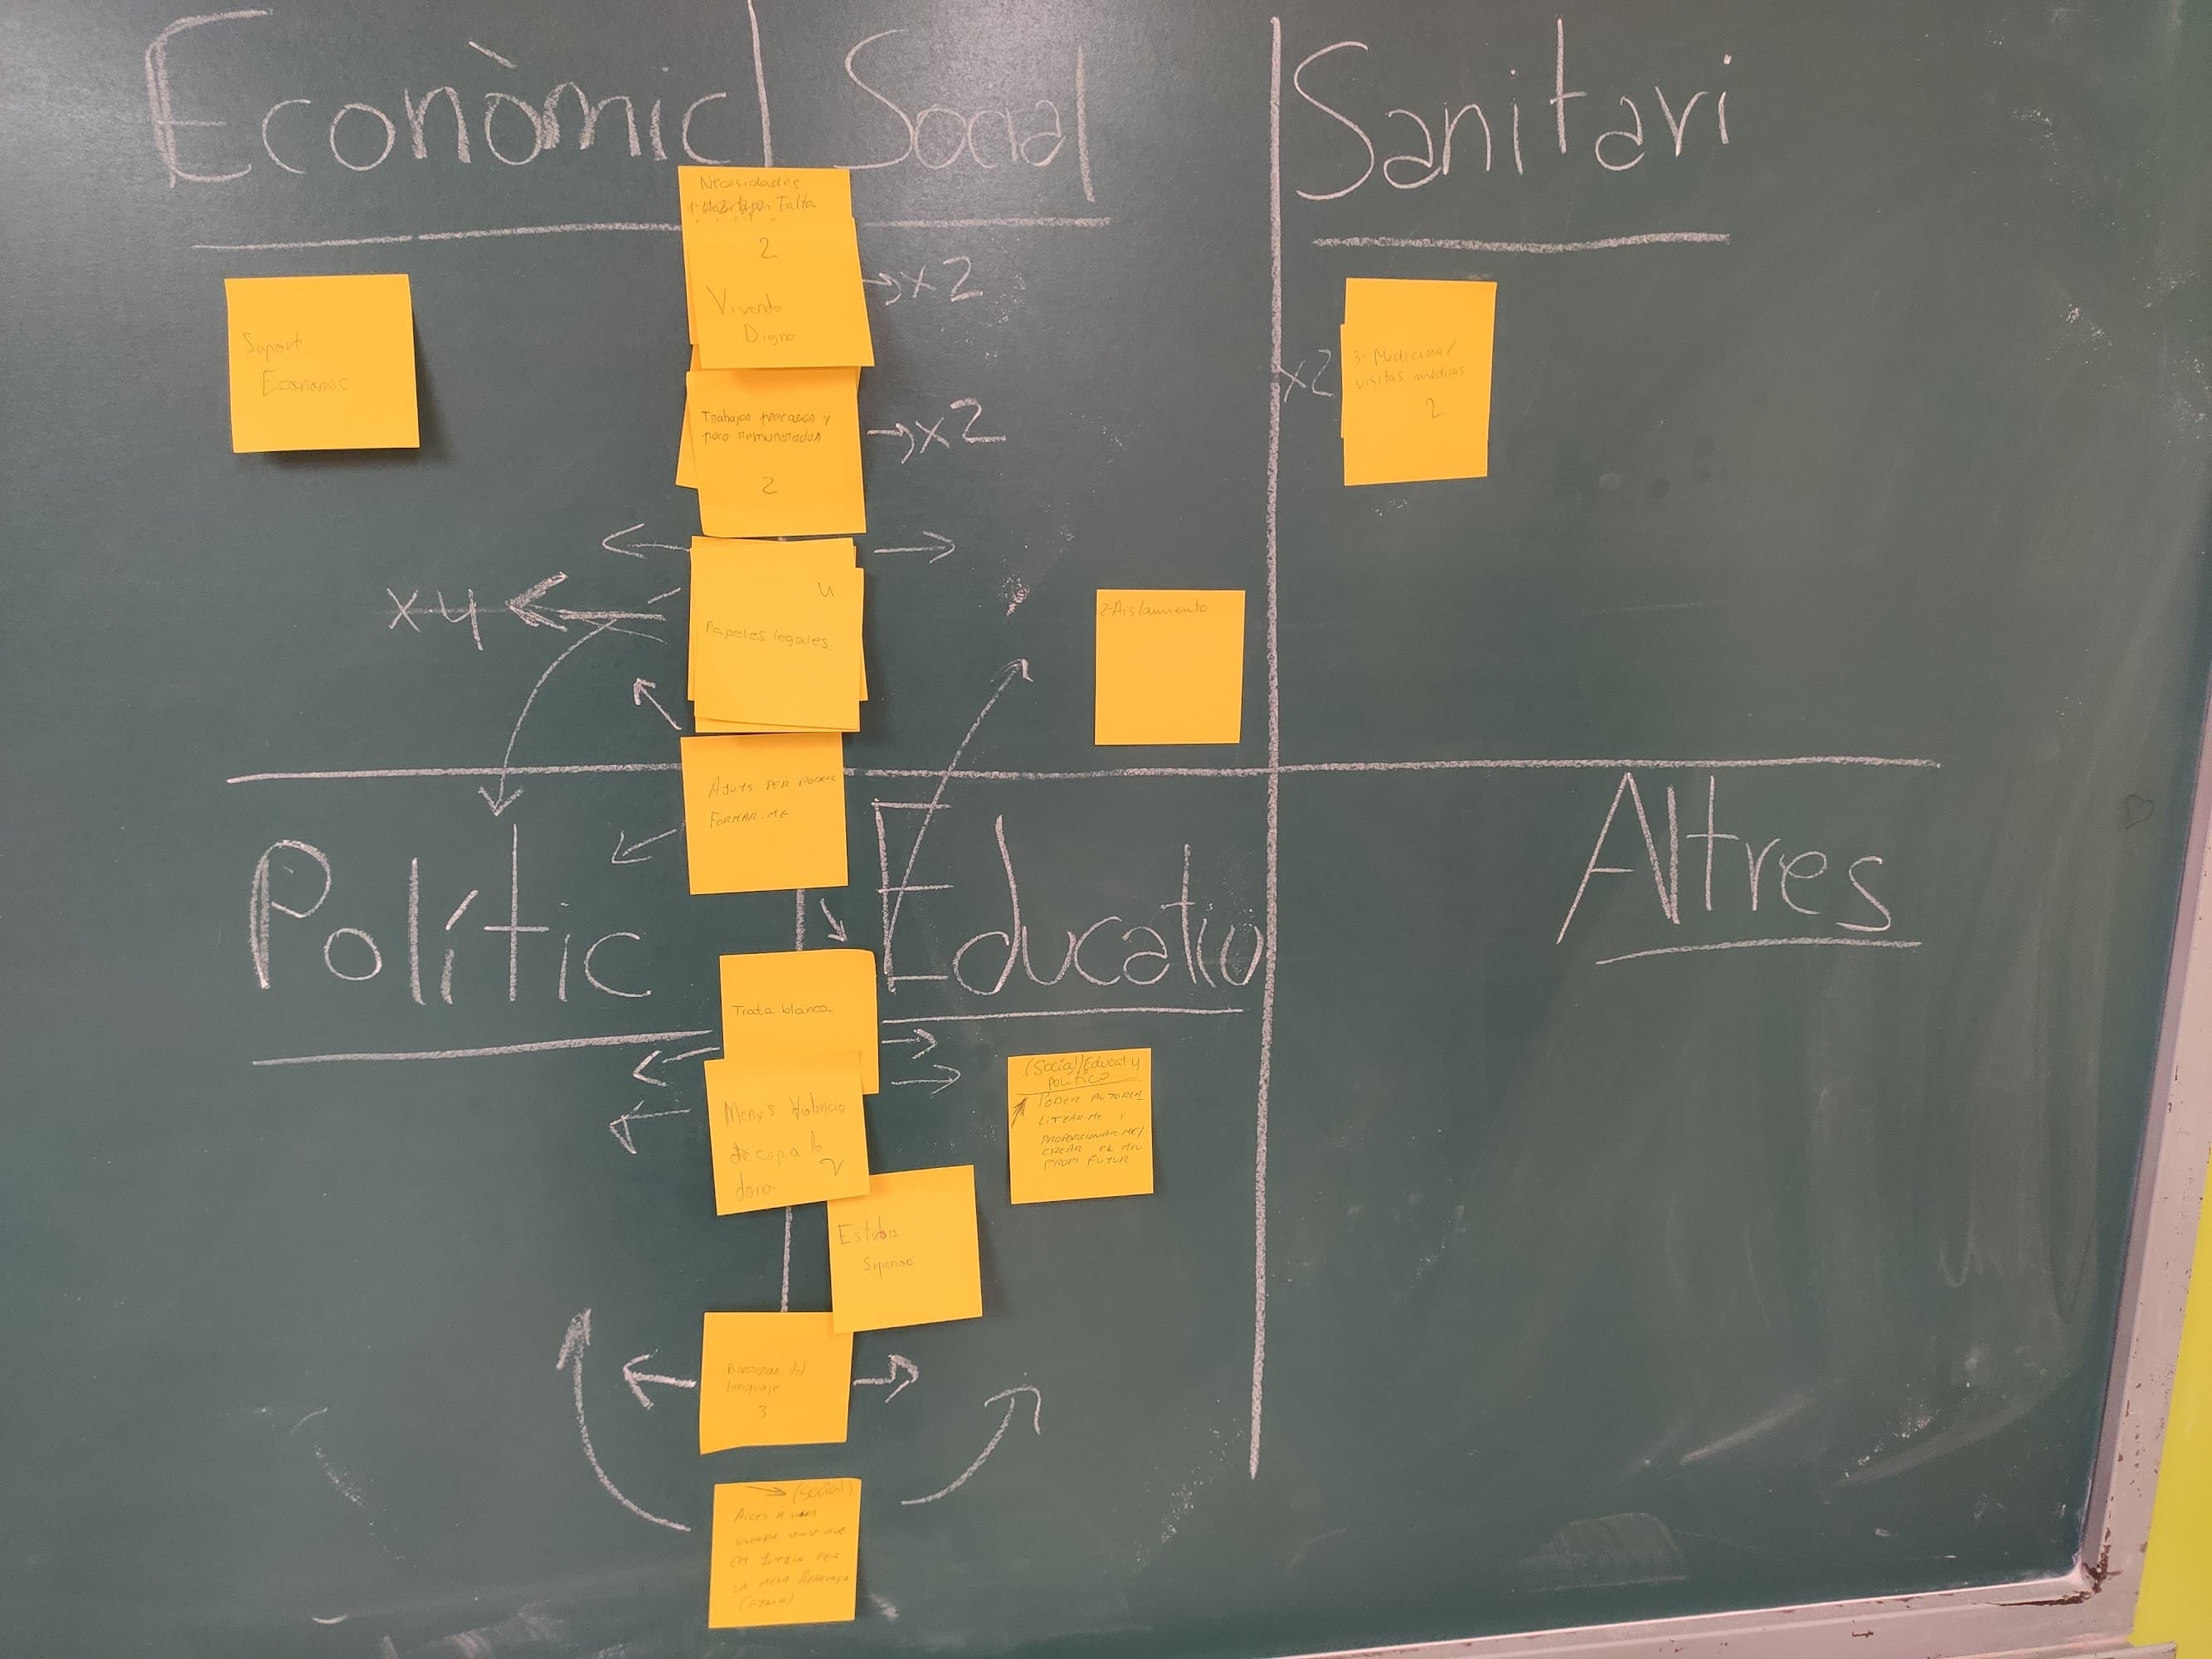 Econòmic
Social
Sanitari
Suport
Econòmic
Necesidades
Falta
2
Vivenda
Digna
→x2
Trabajos precarios y
poco remunerados
2
→x2
3- Medicina/
visitas médicas
2
x2
4
Papeles legales
x4
2-Aislamiento
AJUTS PER PODER
FORMAR-ME
Polític
Educatiu
Altres
Trata blanca
Menys Violencia
de cap a la
dona
2
(Social)/Educat y
politico
PODER AUTOREA
LITZAR-ME I
PROPORSIONAR-ME/
CREAR EL MEU
PROPI FUTUR
Estudis
Superiors
Barreras del
lenguaje
3
(Social)
ACCES A UNA
PER
LA MEVA
(ETNIA)